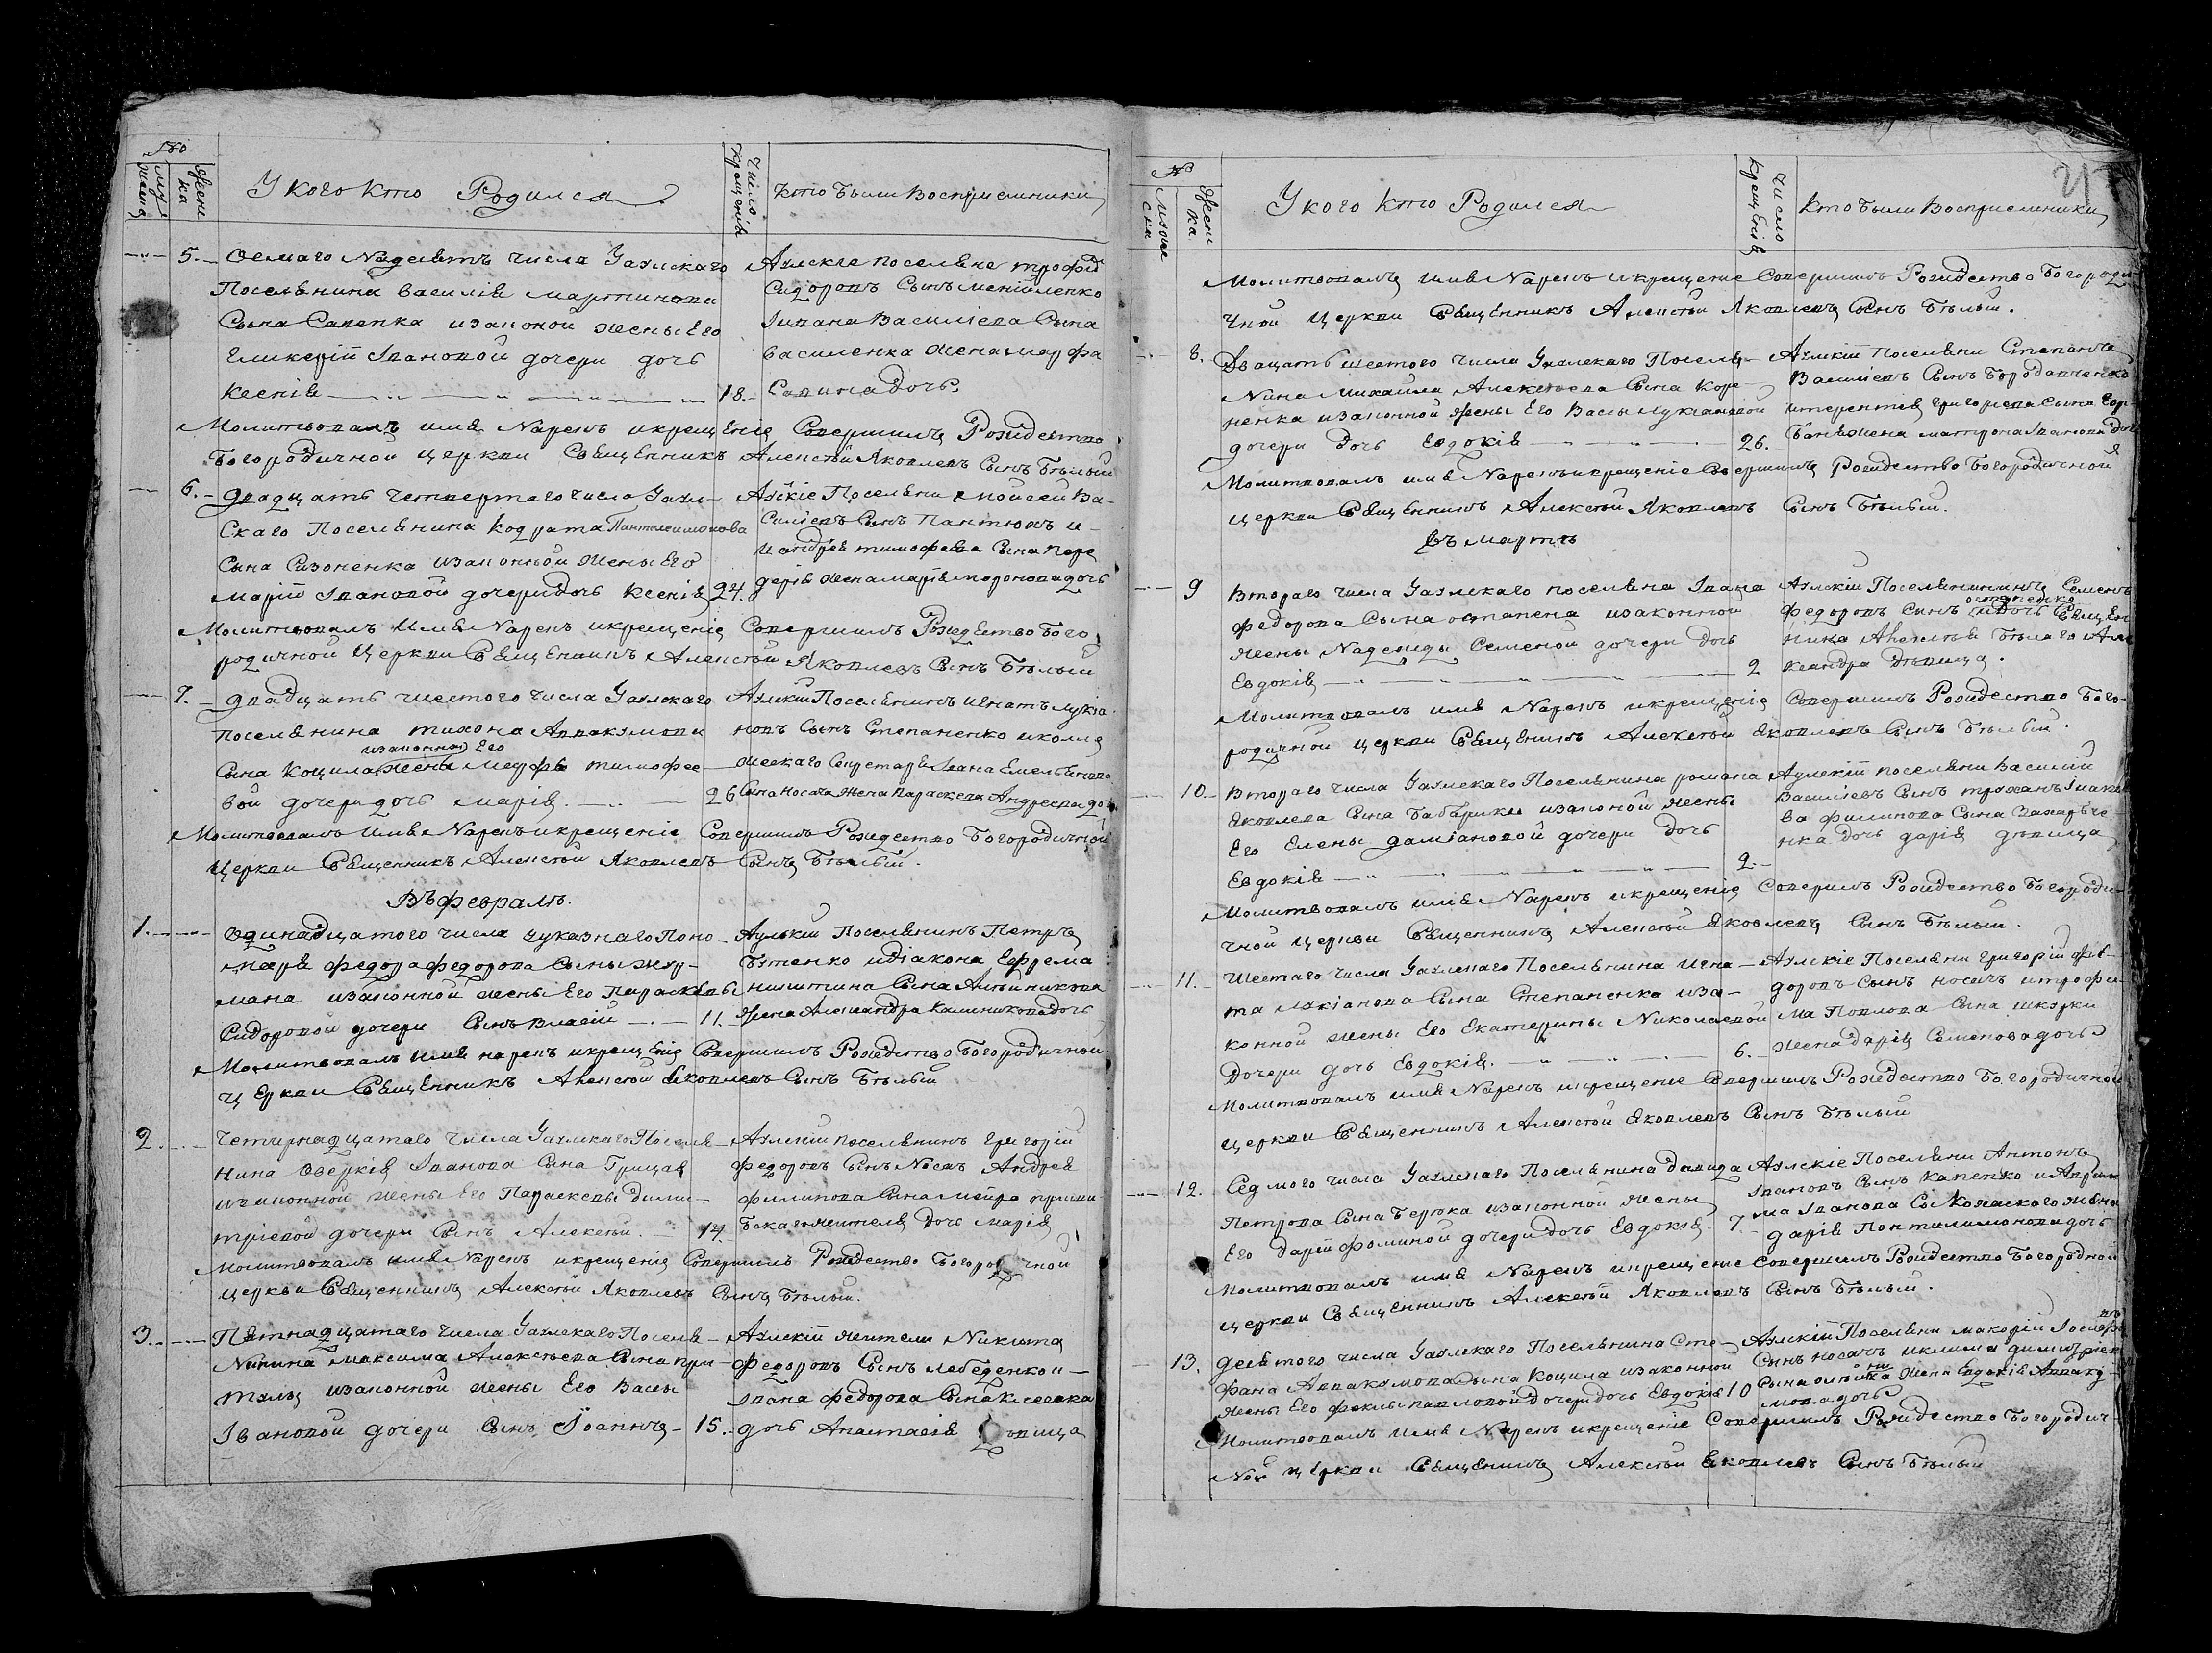 №
муже
ска
женс
ка
У кого кто Родился
Число
крещенія
кто были Восприемники
5. Осмаго Надесять числа Уаулскаго
Поселянина Василія мартинова
Сына Сапенка изаконой жены Его
Гликерій Івановой дочери дочь
Ксенія 18.
Аулскіе поселяне трофим
Сидоровъ Сынъ
Івана Василіева Сына
Василенка жена марфа
Савина дочь.
Молитвовалъ имя Нарекъ икрещеніе Совершилъ Рождество
Богородичной церкви Священникъ Алексѣй Яковлевъ Сынъ Бѣлый
6. двадцать четвертаго числа Уаул-
Скаго Поселянина кодрата Пантелеимонова
Сына Сизоненка изаконной жены Его
марій Івановой дочери дочь Ксенія 24.
Поселяни мойсей Ва-
Силіевъ Сынъ Пантюхъ и
Андрея тимофеева Сына пере
дерія жена марія миронова дочь
Молитвовалъ Имя Нарекъ икрещеніе Совершилъ Рождество Бого
родичной Церкви Священникъ Алексѣй Яковлевъ Сынъ Бѣлый
7. двадцать шестого числа Уаулскаго
поселянина тихона Аввакумова
изаконной Его
Сына Коцила жены Меуфы тимофее
вой дочери дочь марія. 26
Аулскій Поселянинъ Игнатъ лукіа
новъ Сынъ Степаненко иколле
жскаго Сикретаря Івана Емельянова
Сына носача Жена Параскева Андреева дочь
Молитвовалъ Имя Нарекъ икрещеніе Совершилъ Рождество Богородичной
Церкви Священникъ Алексѣй Яковлевъ Сынъ Бѣлый.
Въ февралѣ.
1. Одинадцатого числа Ууказнаго Поно
маря федора федорова Сына жур-
мана изаконной жены Его Параскевы
Сидоровой дочери Сынъ Власій 11.
Аулскій Поселянинъ Петръ
Бутенко идіакона Ефрема
никитина Сына Алейникова
Жена Александра Калиникова дочь
Молитвовалъ имя нарекъ икрещеніе Совершилъ Рождество Богородичной
Церкви Священникъ Алексѣй Яковлевъ Сынъ Бѣлый
2. Четырнадцатаго числа Уаулскаго Поселя
Нина Оверкія Іванова Сына Грицая
изаконной жены Его Параскевы дими-
тріевой дочери Сынъ Алексѣй. 14.
Аулскій поселянинъ григорій
федоровъ Сынъ Носачъ Андрея
филипова Сына
жителя дочь марія
Молитвовалъ имя Нарекъ икрещеніе Совершилъ Рождество Богородичной
церкви Священникъ Алексѣй Яковлевъ Сынъ Бѣлый.
3. Пятнадцатаго числа Уаулскаго Поселя
Нина максима Алексѣева Сына при-
тулы изаконной жены Его Васы
Івановой дочери Сынъ Іоаннъ 15.
Аулскій жители Никита
федоровъ Сынъ лебеденко и
Івана федорова Сына
дочь Анастасія Дѣвица
№
Мужес
ска
женс
ка
У кого кто Родился
число
крещенія
кто были Восприемники
Молитвовалъ имя Нарекъ икрещеніе Совершилъ Рождество Богороди
чной Церкви Священникъ Алексѣй Яковлевъ Сынъ Бѣлый.
8. Двацать шестого числа Уаулскаго Поселя-
Нина Михайла Алексѣева Сына Коре
ненка изаконной жены Его Васы лукіановой
дочери Дочь Евдокія 26.
Аулскій поселяни Степанъ
Василіевъ Сынъ Бородавченко
итерентія григорева Сына Гор-
баня жена матрона Іванова дочь
Молитвовалъ имя Нарекъ икрещеніе Совершилъ Рождество Богородичной
церкви Священникъ Алексѣй Яковлевъ Сынъ Бѣлый.
Въ мартѣ
9 Втораго числа Уаулскаго поселяна Івана
федорова Сына остапена изаконной
жены Надежды Семеной дочери Дочь
Евдокія 2
Аулскій Поселянинъ Семенъ
остапенко
федоровъ Сынъ идочь Священ
ника Алексѣя Бѣлаго Але
ксандра Дѣвица.
Молитвовалъ имя Нарекъ икрещеніе Совершилъ Рождество Бого-
родичной церкви Священикъ Алексѣй Яковлевъ Сынъ Бѣлый.
10. Втораго числа Уаулскаго Поселянина романа
Яковлева Сына Бабарики изаконой жены
Его Елены даміановой дочери Дочь
Евдокія 2.
Аулскій поселяни Василій
Василіевъ Сынъ Іако
ва филипова Сына Захарче
нка дочь дарія дѣвица
Молитвовалъ имя Нарекъ икрещеніе Соверилъ Рождество Богороди-
чной церкви Священникъ Алексѣй Яковлевъ Сынъ Бѣлый.
11. Шестаго числа Уаулскаго Поселянина Игна-
та лукіанова Сына Степаненка иза-
конной жены Его Екатерины Николаевой
Дочери дочь Евдокія. 6.
Аулскіе Поселяни григорій фе-
доровъ Сынъ носачъ итрофи-
ма Павлова Сына шкурки
жена дарія Семенова дочь
Молитвовалъ имя Нарекъ икрещеніе Совершилъ Рождество Богородичной
церкви Священникъ Алексѣй Яковлевъ Сынъ Бѣлый
12. Седмого числа Уаулскаго Поселянина давида
Петрова Сына Бериока изаконной жены
Его Дарій фоминой дочери дочь Евдокія. 7.
Аулскіе Поселяни Антонъ
Івановъ Сынъ Капенко
ма Іванова жена
дарія Пантилимонова дочь
Молитвовалъ имя Нарекъ икрещеніе Совершилъ Рождество Богородной
церкви Священникъ Алексѣй Яковлевъ Сынъ Бѣлый.
13. девятого числа Уаулскаго Поселянина Сте-
фана Аввакумова Сына Коцила изаконной
жены Его феклы павловой дочери дочь Евдокія 10
Аулскій Поселяни макарій Іосифовъ
Сынъ носачъ иклима димитріев
Сына олѣйника жена Евдокія Авваку-
мова дочь
Молитвовалъ имя Нарекъ икрещеніе Совершилъ Рождество Богородич-
Ной церкви Священикъ Алексѣй Яковлевъ Сынъ Бѣлый